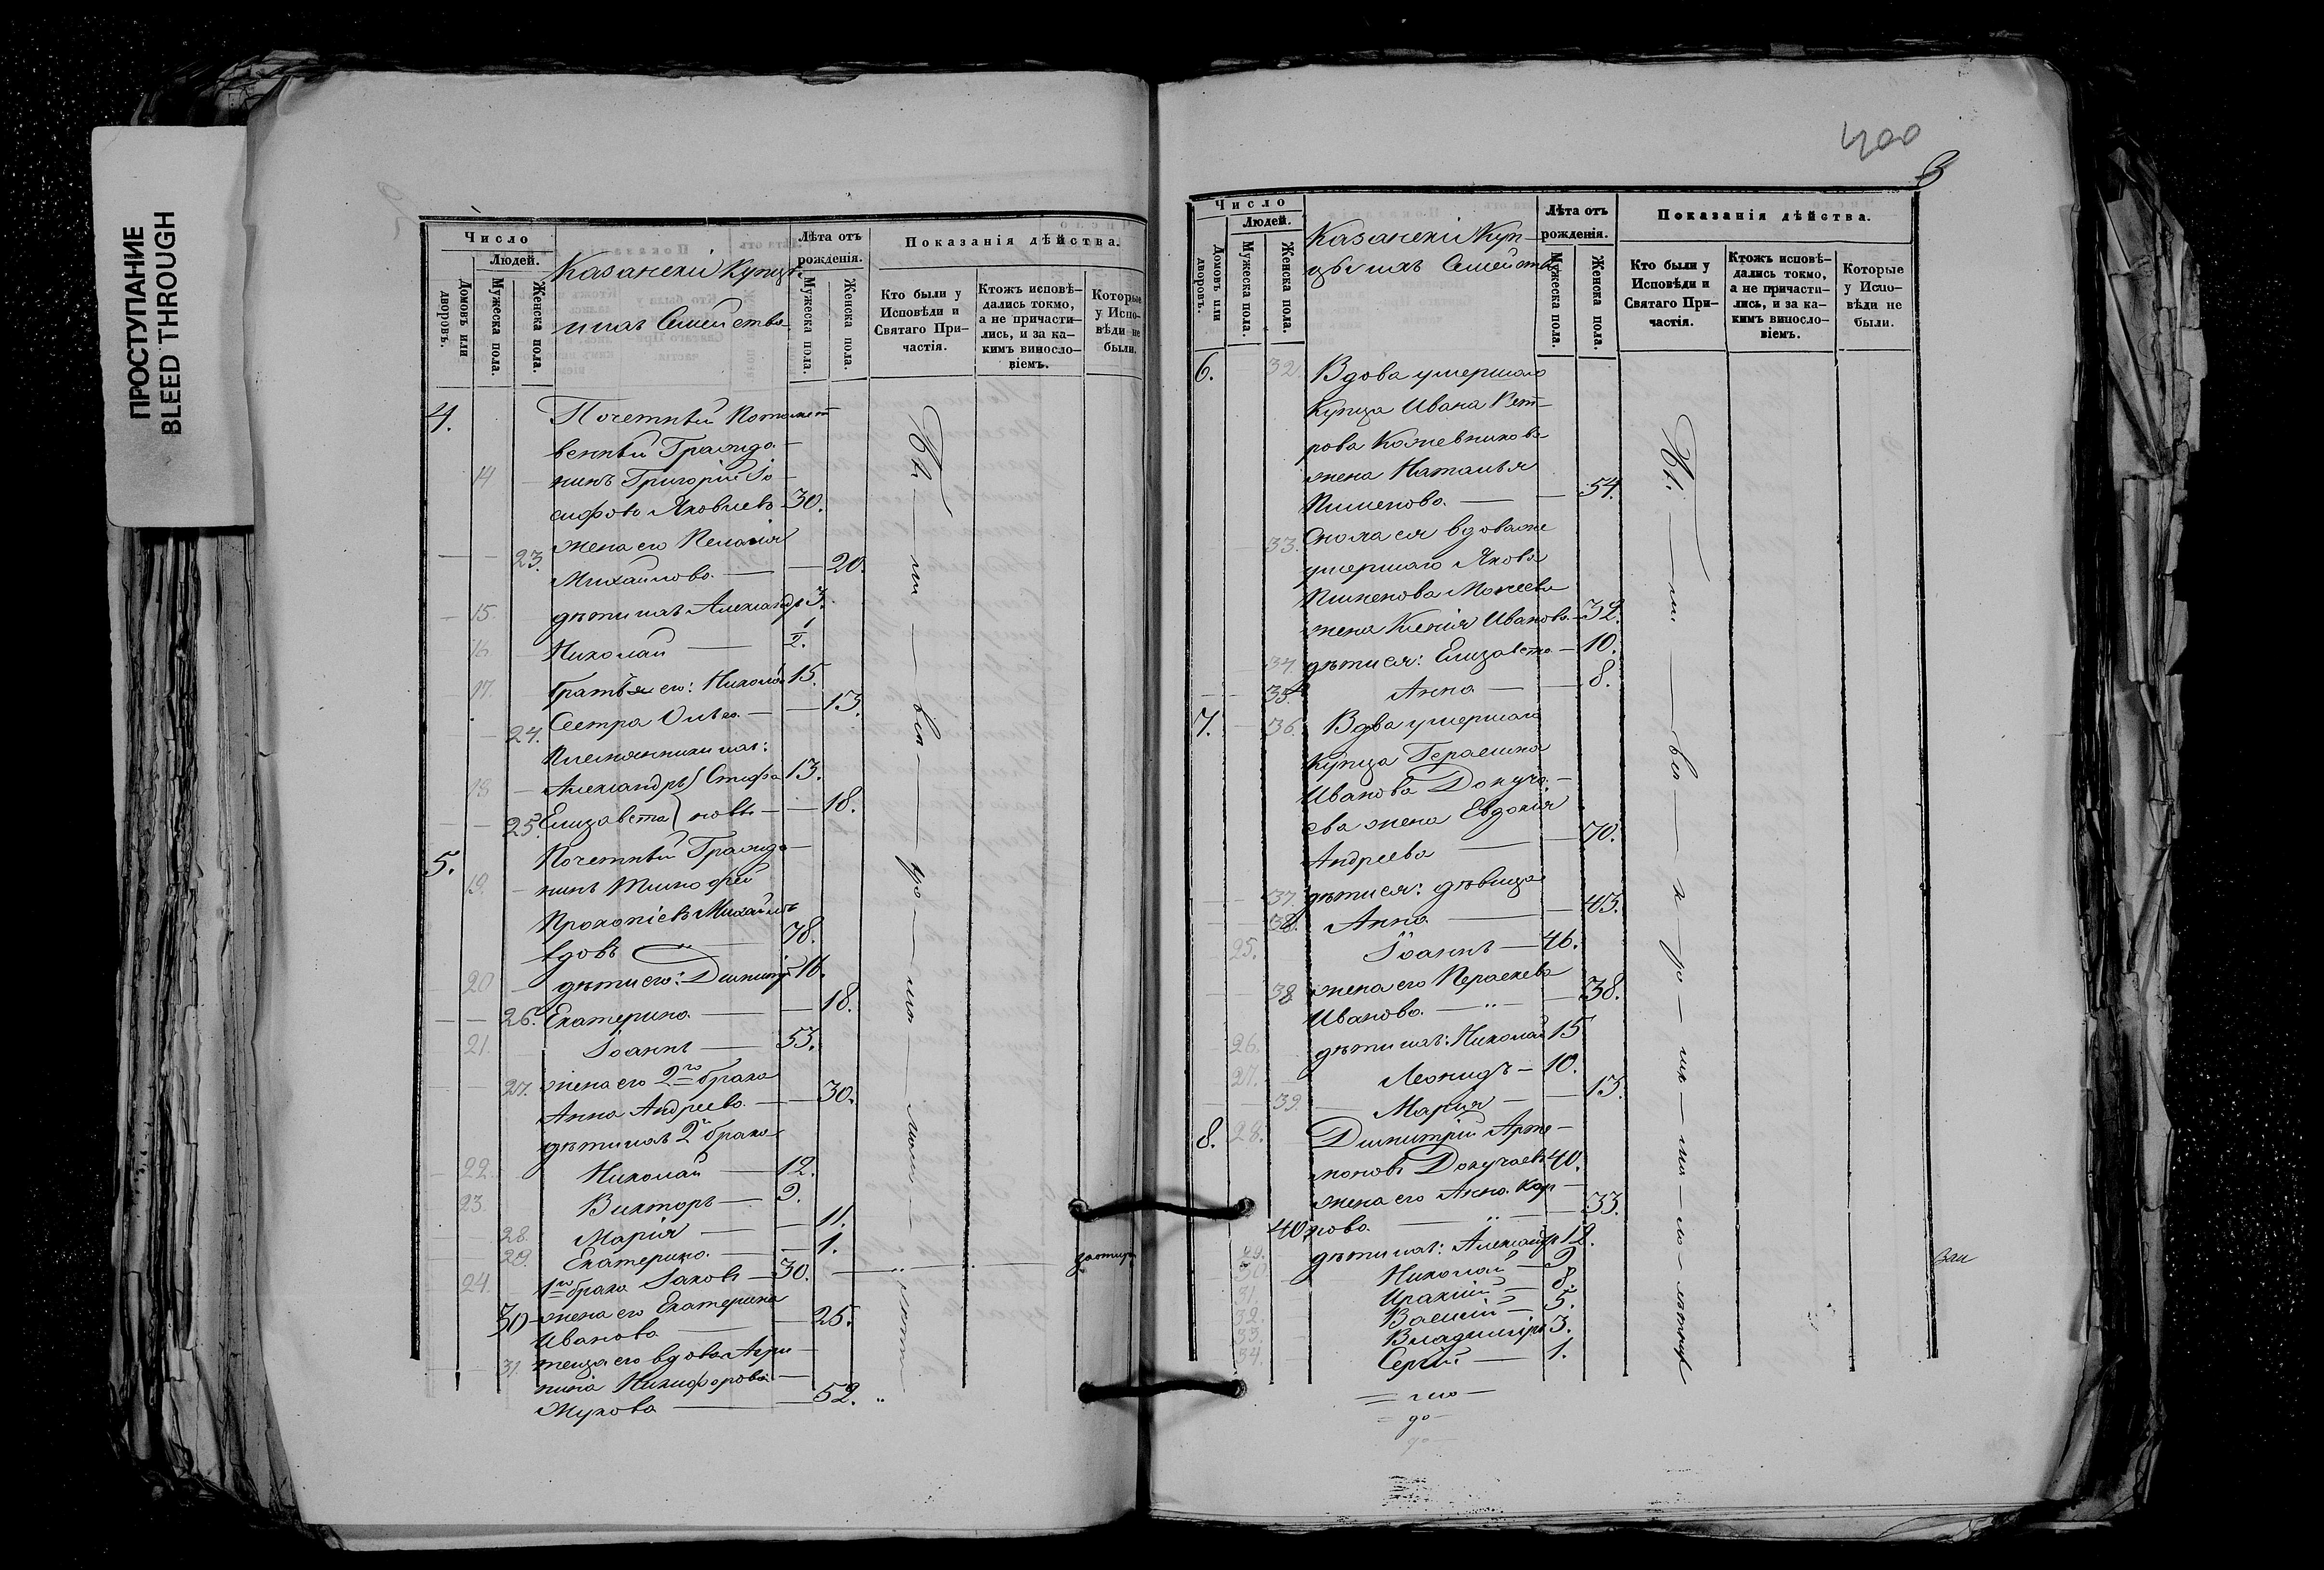 ПРОСТУПАНИЕ
BLEED THROUGH
Число
Людей.
Домовъ или дворовъ.
Мужеска пола.
Женска пола.
Казанскіи Купцы
и ихъ Семейства
Лѣта отъ рожденія.
Мужеска пола.
Женска пола.
Показанія дѣйства.
Кто были у Исповѣди и Святаго При-частія.
Ктожъ исповѣ-дались токмо, а не причасти-лись, и за ка-кимъ виносло-віемъ.
Которые у Испо-вѣди не были.
4. Почетный Потомст
венный Гражда-
14 нинъ Григорій Іо-
сифовъ Яковлевъ 30.
23. жена его Пелагія
Михайлова — 20.
15. дѣти ихъ Александръ 3.
16. Николай — 1/2.
17. братья его: Николай 15.
24. Сестра Ольга — 13.
Племянники ихъ:
18 Александръ } Стефа 13.
25. Елизавета } новы — 18.
5. Почетный Гражда-
19. нинъ Тимофей
Прокопіевъ Михайловъ
вдовъ — 78.
20 дѣти его: Димитрій 16.
26. Екатерина — 18.
21. Іоаннъ — 53.
27. жена его 2го брака
Анна Андреева — 30.
дѣти ихъ 2го брака
22. Николай — 12.
23. Викторъ — 9.
28. Марія — 11.
29. Екатерина — 1.
24. 1го брака Іаковъ — 30.
30 жена его Екатерина
Иванова — 25.
31. теща его вдова Агри-
пина Никифорова
Жукова — 52.
400
3
Число
Людей.
Домовъ или дворовъ.
Мужеска пола.
Женска пола.
Казанскіи Куп-
цы и ихъ Семейства
Лѣта отъ рожденія.
Мужеска пола.
Женска пола.
Показанія дѣйства.
Кто были у Исповѣди и Святаго При-частія.
Ктожъ исповѣ-дались токмо, а не причасти-лись, и за ка-кимъ виносло-віемъ.
Которые у Испо-вѣди не были.
6. 32. Вдова умершаго
Купца Ивана Пет-
рова Кожевникова
жена Наталья
Пименова — 54.
33. Сноха ея вдова же
умершаго Якова
Пименова
жена Ксенія Иванова — 32.
34 дѣти ея: Елизавета — 10.
35. Анна — 8.
7. 36. Вдова умершаго
Купца Герасима
Иванова Докуча-
ева жена Евдокія
Андреева — 70.
37. дѣти ея: дѣвица
38. Анна — 43.
25. Іоаннъ — 46.
38 жена его Параскева
Иванова — 38.
26. дѣти ихъ: Николай 15
27. Леонидъ — 10.
39. Марія — 13.
8. 28. Димитрій Арте-
моновъ Докучаевъ 40.
жена его Анна Кар-
40 пова — 33.
29. дѣти ихъ: Александръ 12.
30. Николай — 9
31. Ираклій — 8.
32. Василій — 5.
33. Владиміръ 3.
34. Сергій — 1.